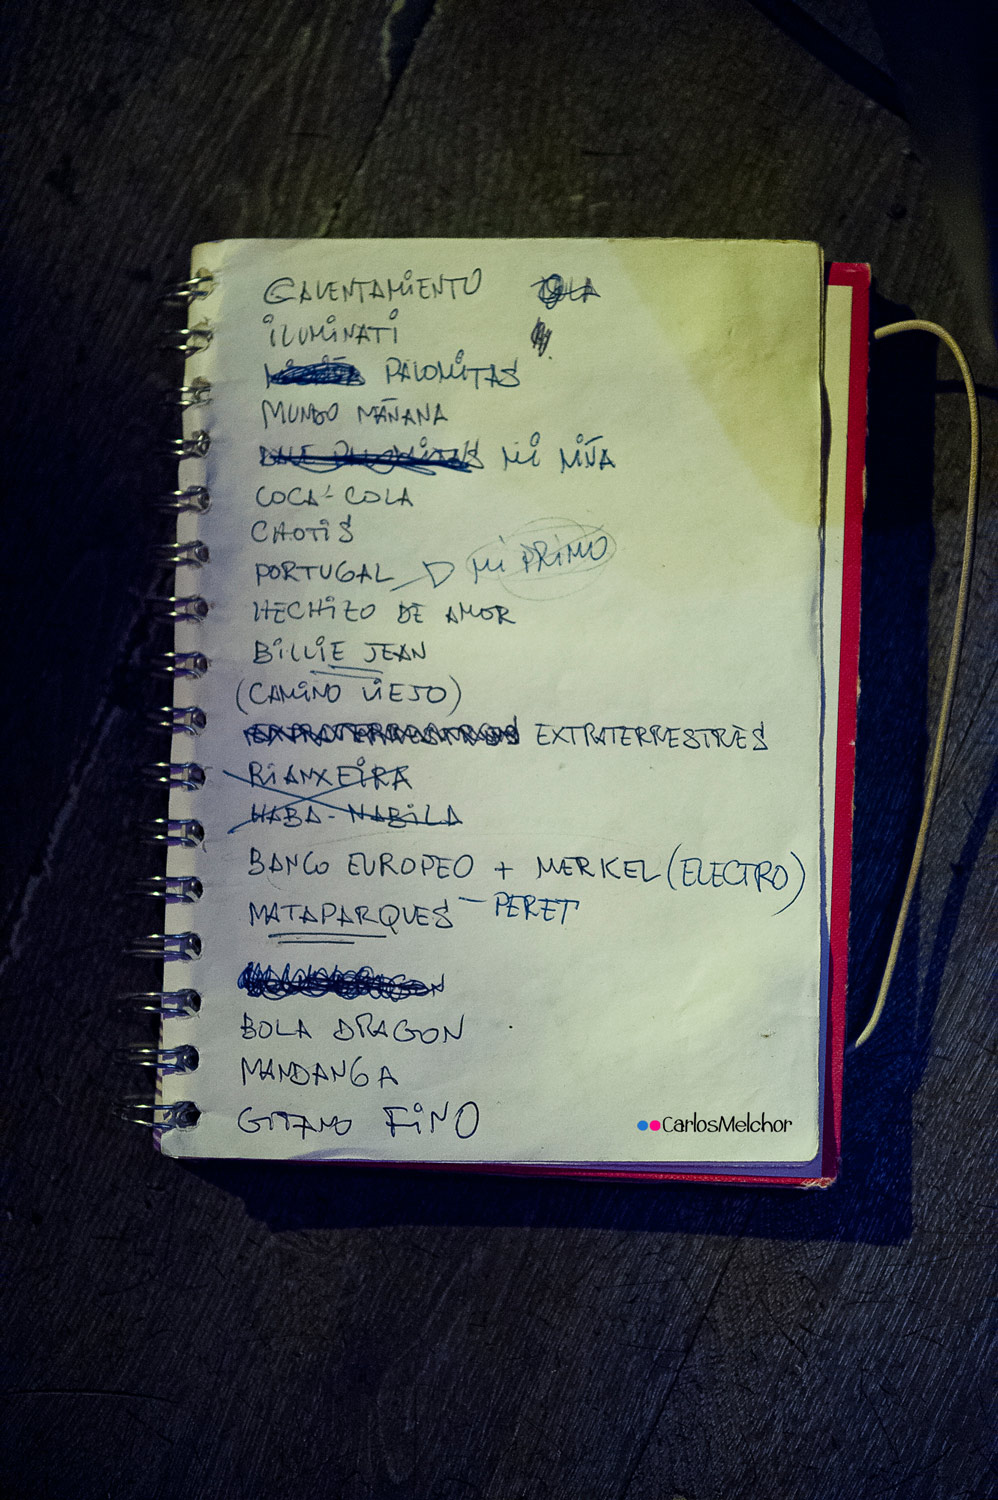 CALENTAMIENTO
ILUMINATI
PALOMITAS
MUNDO MAÑANA
MI NIÑA
COCA-COLA
CHOTIS
PORTUGAL MI PRIMO
HECHIZO DE AMOR
BILLIE JEAN
(CAMINO VIEJO)
EXTRATERRESTRES EXTRATERRESTRES
RIANXEIRA
HABA-NABILA
BANCO EUROPEO + MERKEL (ELECTRO)
MATAPARQUES - PERET
BOLA DRAGON
MANDANGA
GITANO FINO
CarlosMelchor